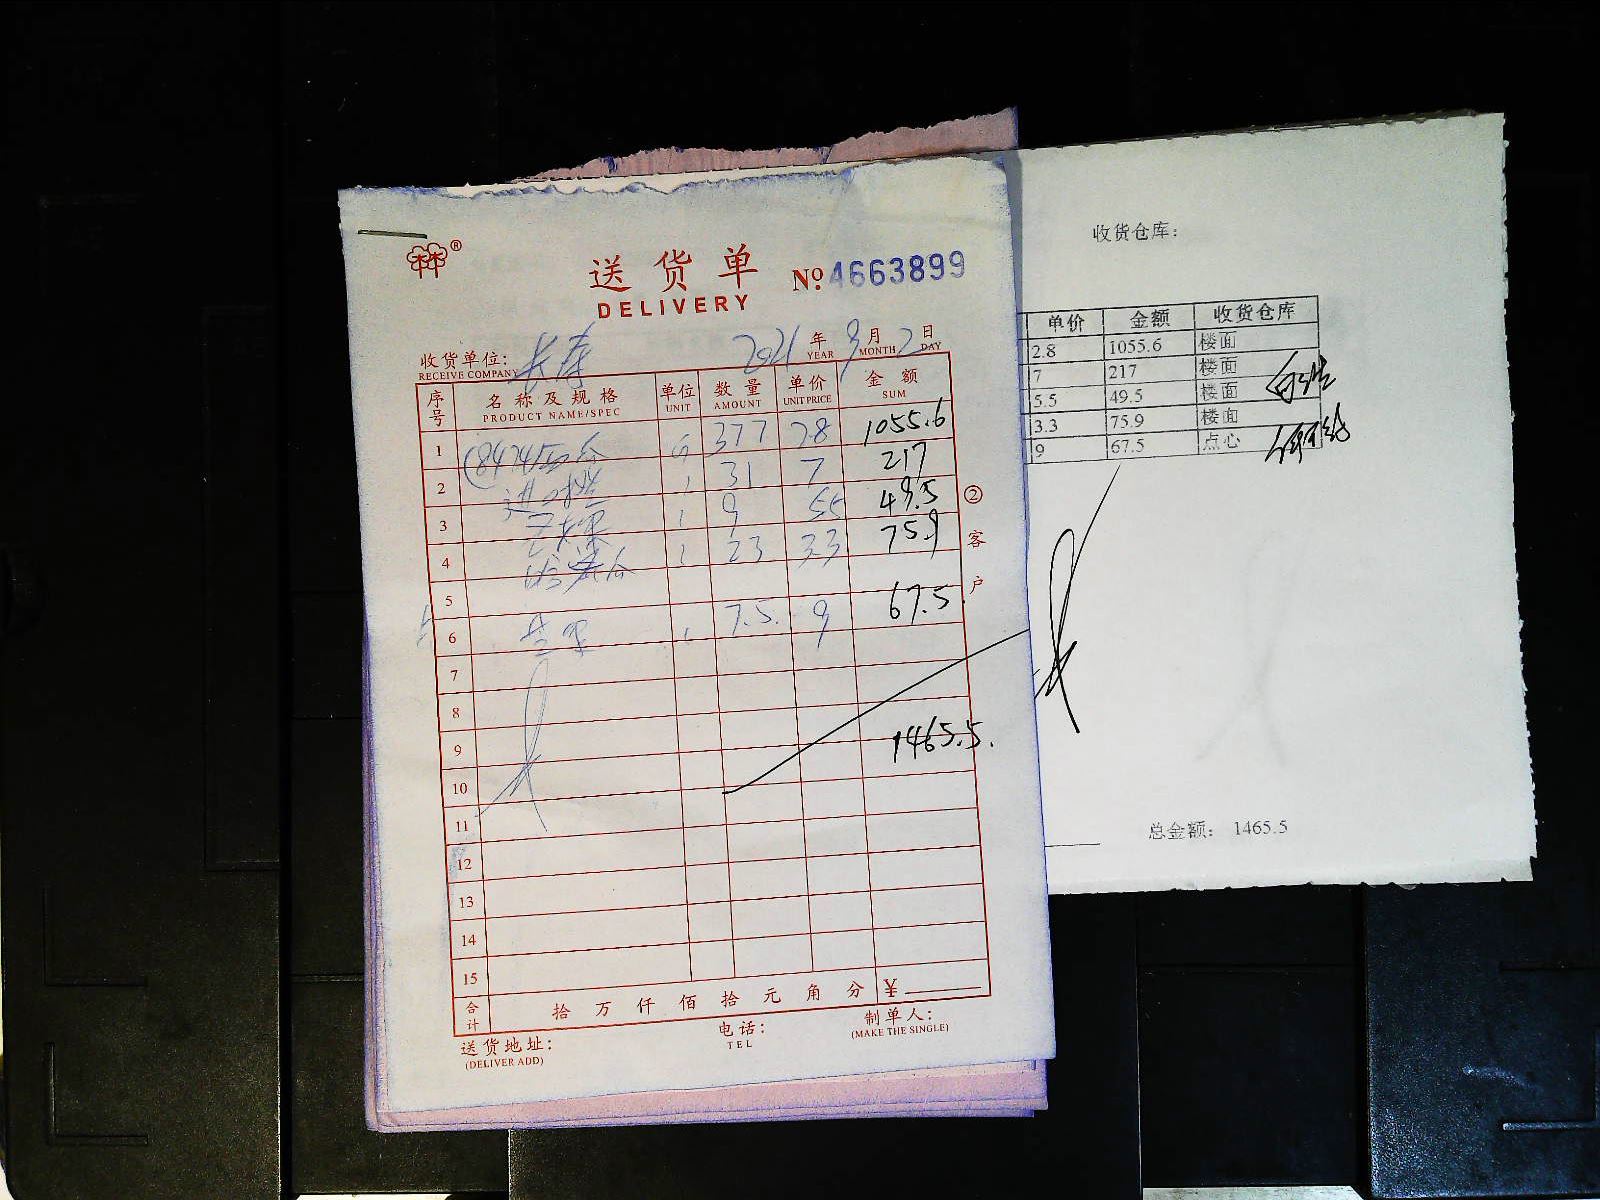 送货单 № 4663899
DELIVERY
收货单位: 长寿 2021 年 9 月 2 日
RECEIVE COMPANY YEAR MONTH DAY
序号 名称及规格 单位 数量 单价 金额
PRODUCT NAME/SPEC UNIT AMOUNT UNIT PRICE SUM
1 377 2.8 1055.6
2 31 7 217
3 9 5.5 49.5
4 23 3.3 75.9
5
6 芒果 7.5 9 67.5
7
8
9 1465.5
10
11
12
13
14
15
合计 拾 万 仟 佰 拾 元 角 分 ¥
送货地址: 电话: 制单人:
(DELIVER ADD) TEL (MAKE THE SINGLE)
②客户
收货仓库:
单价 金额 收货仓库
2.8 1055.6 楼面
7 217 楼面
5.5 49.5 楼面
3.3 75.9 楼面
9 67.5 点心
总金额: 1465.5